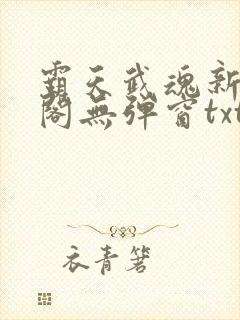 霸天武魂新
閣無彈窗txt
衣青箬